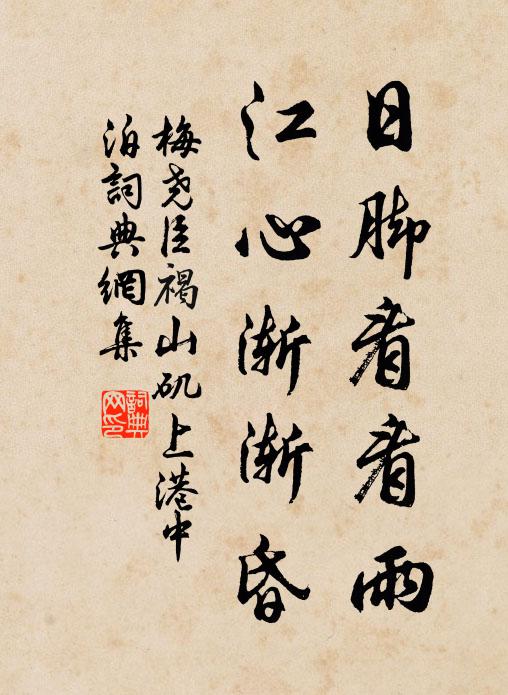 日脚看看雨
江心渐渐昏
梅尧臣褐山矶上港中
泊詞典網集
詞典网印